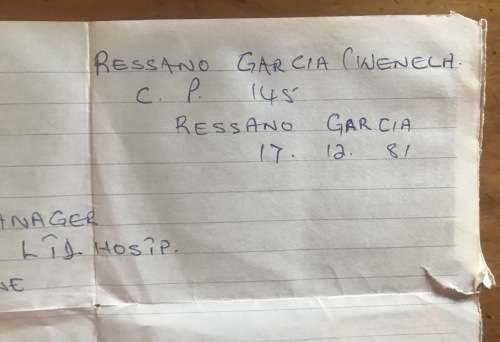 RESSANO GARCIA (WENELA.
C. P. 145
RESSANO GARCIA
17. 12. 81
ANAGER
LTD HOSIP.
NE